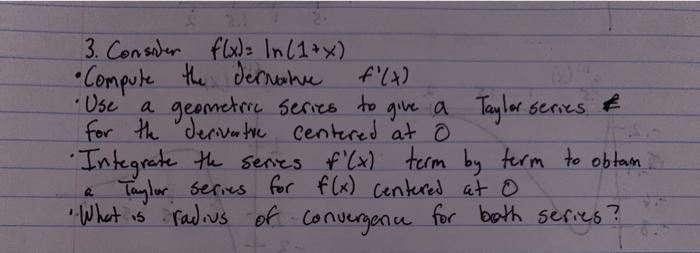 3. Consider f(x)= ln(1+x)
• Compute the derivative f'(x)
• Use a geometric series to give a Taylor series
for the derivative centered at 0
• Integrate the series f'(x) term by term to obtain
a Taylor series for f(x) centered at 0
• What is radius of convergence for both series?